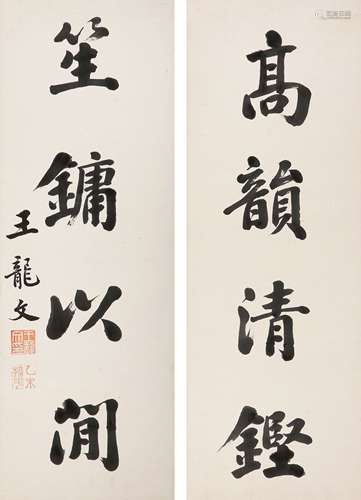 髙韻清鏗
笙鏞以閒
王龍文
乙未
探花